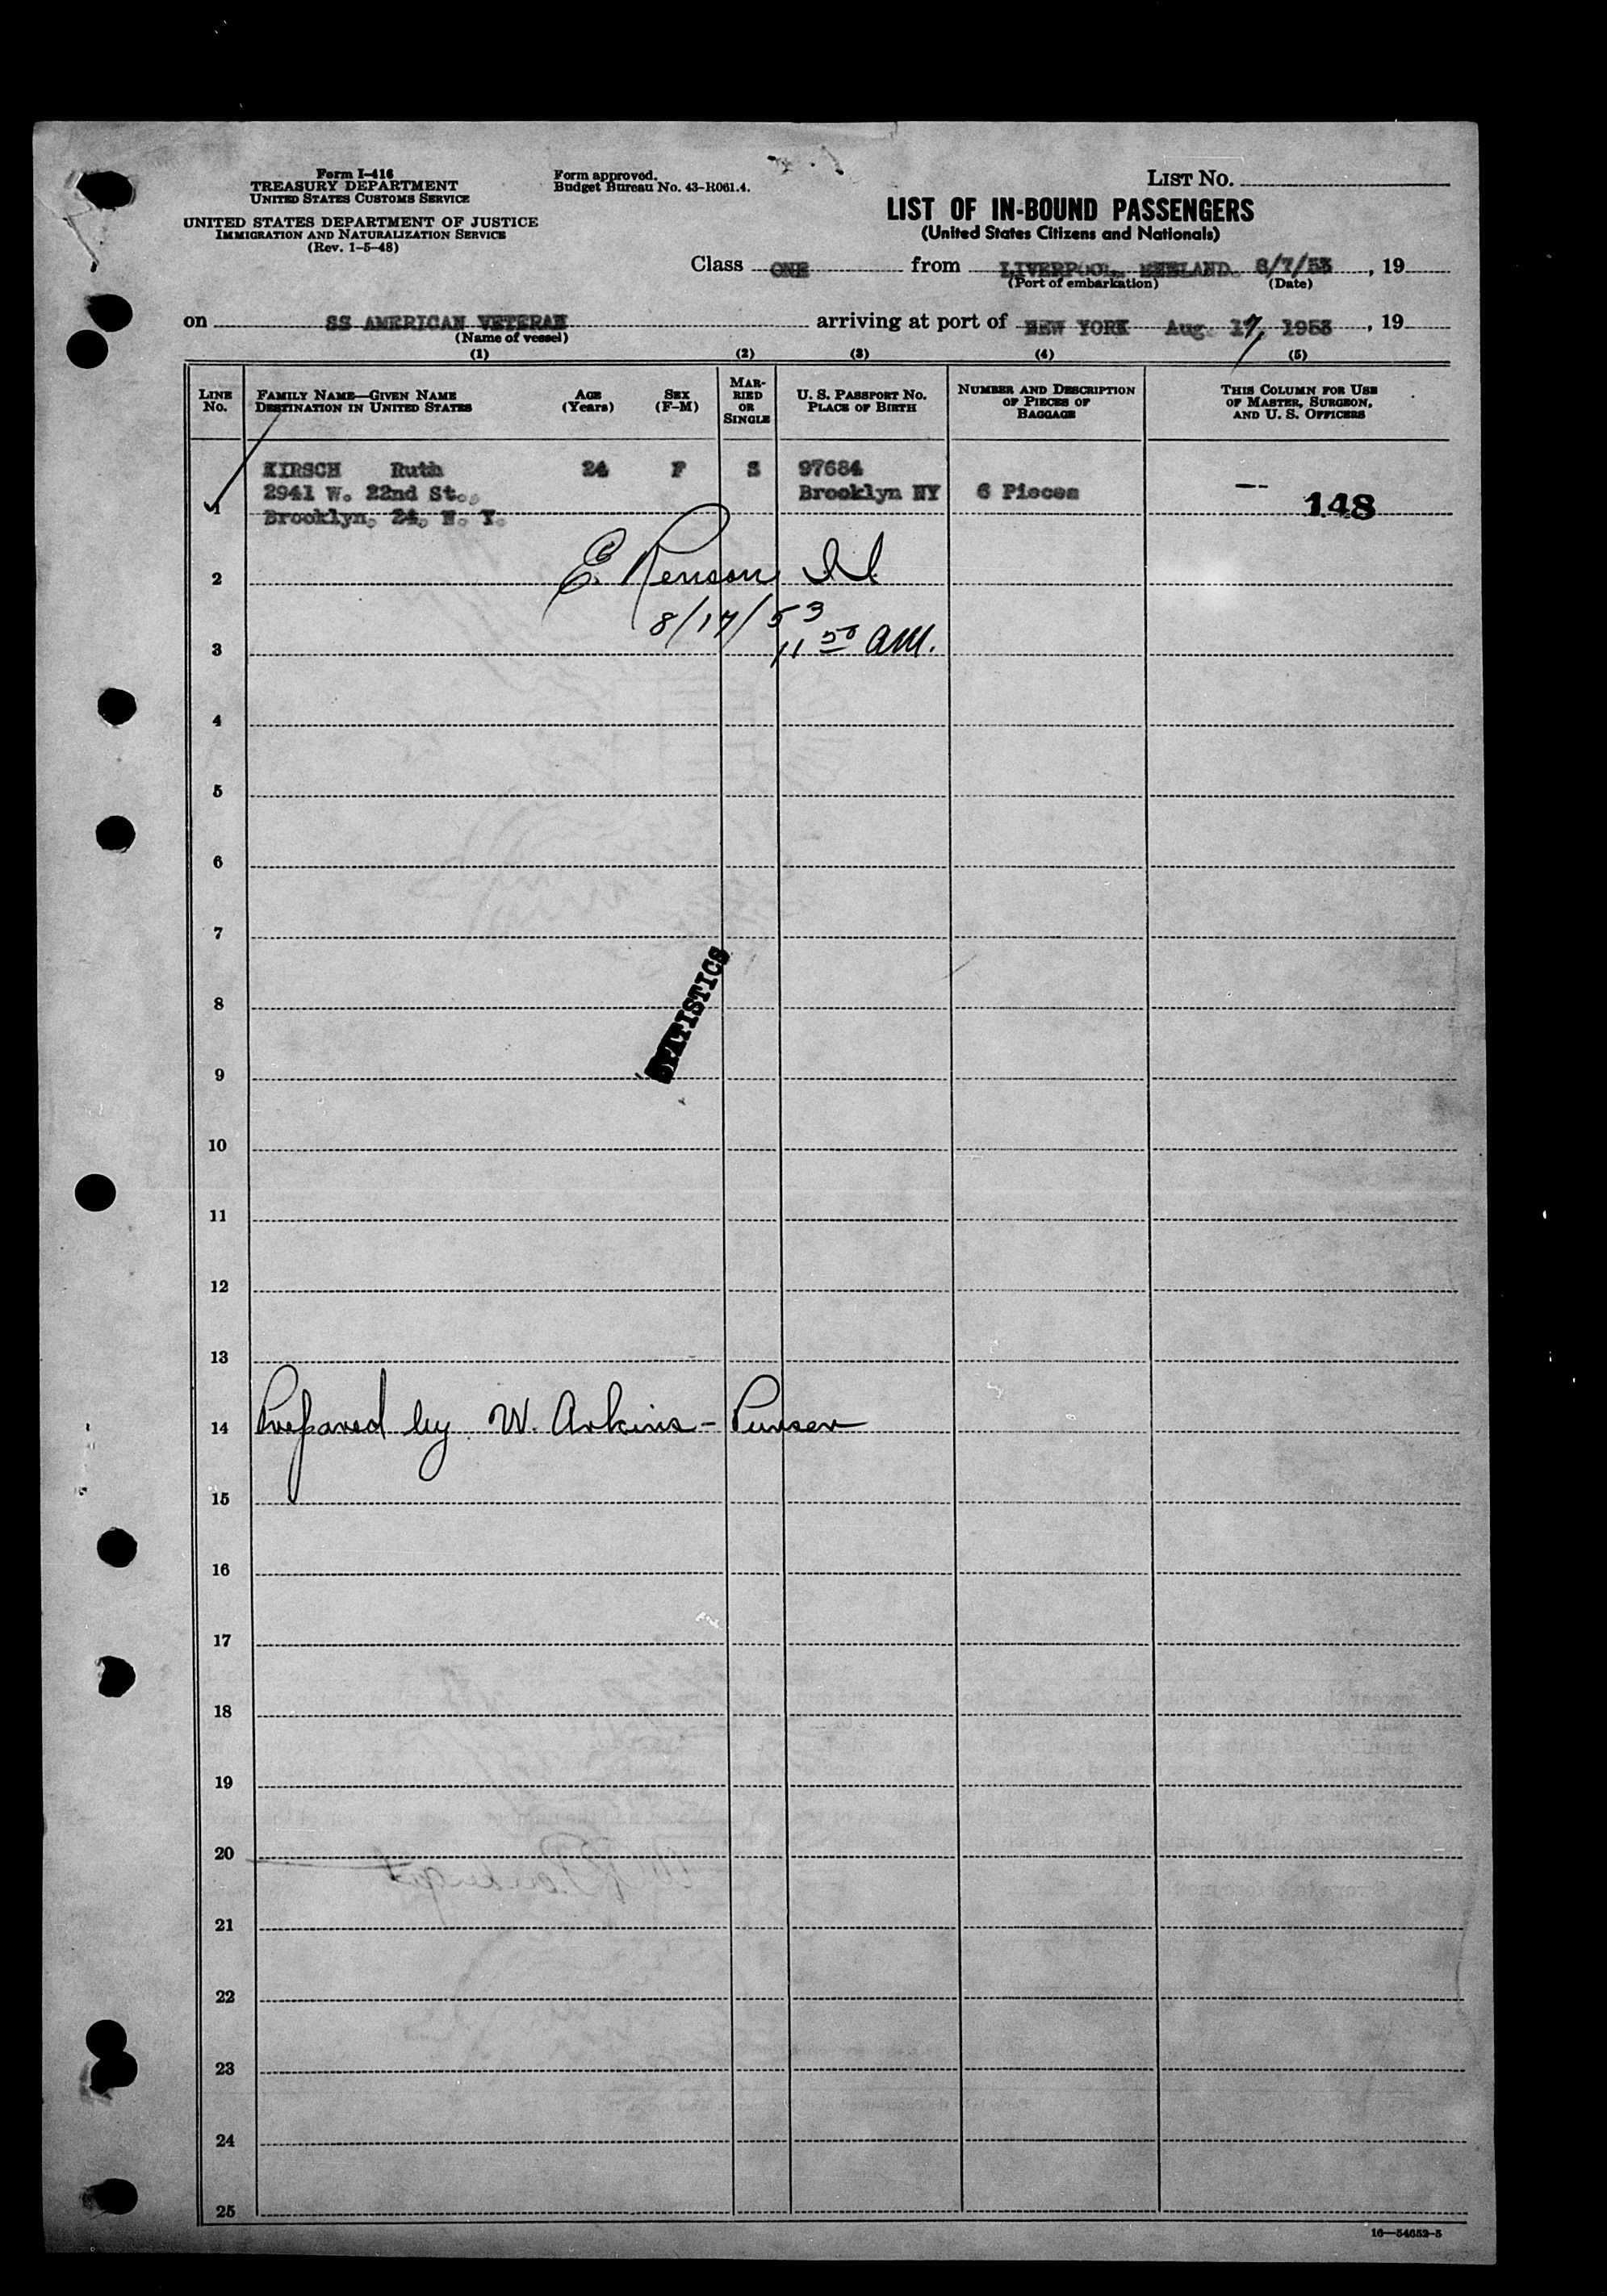 Form I-416
TREASURY DEPARTMENT
UNITED STATES CUSTOMS SERVICE
UNITED STATES DEPARTMENT OF JUSTICE
IMMIGRATION AND NATURALIZATION SERVICE
(Rev. 1-5-48)
Form approved.
Budget Bureau No. 43-R061.4.
LIST NO.
LIST OF IN-BOUND PASSENGERS
(United States Citizens and Nationals)
Class ONE from LIVERPOOL, ENGLAND 8/7/53, 19
(Port of embarkation) (Date)
on SS AMERICAN VETERAN arriving at port of NEW YORK Aug. 17, 1953, 19
(Name of vessel)
(1) (2) (3) (4) (5)
LINE No.
FAMILY NAME—GIVEN NAME
DESTINATION IN UNITED STATES
AGE (Years)
SEX (F-M)
MARRIED OR SINGLE
U. S. PASSPORT NO.
PLACE OF BIRTH
NUMBER AND DESCRIPTION OF PIECES OF BAGGAGE
THIS COLUMN FOR USE OF MASTER, SURGEON, AND U. S. OFFICERS
KIRSCH Ruth 24 F S 97684
2941 W. 22nd St., Brooklyn NY 6 Pieces — 148
1 Brooklyn, 24, N. Y.
2 E. Renson
8/17/53
3 11 50 AM.
4
5
6
7
STATISTICS
8
9
10
11
12
13
14 Prepared by W. Arkins - Purser
15
16
17
18
19
20
21
22
23
24
25
16—54652-5